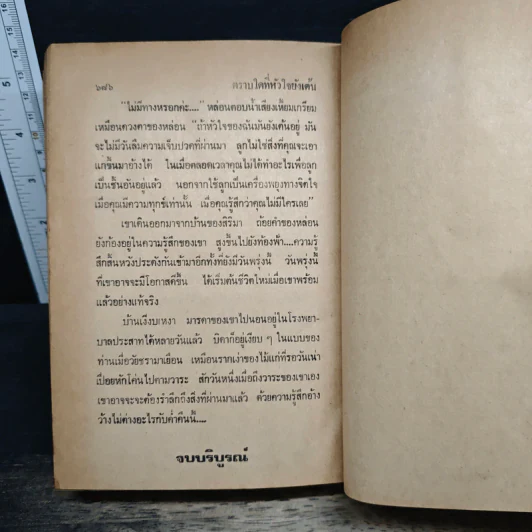 ๖๗๖ ตราบใดที่หัวใจยังเต้น
"ไม่มีทางหรอกค่ะ...." หล่อนตอบน้ำเสียงเหี้ยมเกรียม
เหมือนดวงตาของหล่อน "ถ้าหัวใจของฉันมันยังเต้นอยู่ มัน
จะไม่มีวันลืมความเจ็บปวดที่ผ่านมา ลูกไม่ใช่สิ่งที่คุณจะเอา
แก่ขึ้นมาอ้างได้ ในเมื่อตลอดเวลาคุณไม่ได้ทำอะไรเพื่อลูก
เป็นชิ้นอันอยู่แล้ว นอกจากใช้ลูกเป็นเครื่องพยุงทางจิตใจ
เมื่อคุณมีความทุกข์เท่านั้น เมื่อคุณรู้สึกว่าคุณไม่มีใครเลย"
เขาเดินออกมาจากบ้านของสิริมา ถ้อยคำของหล่อน
ยังก้องอยู่ในความรู้สึกของเขา สูงขึ้นไปยังท้องฟ้า....ความรู้
สึกสิ้นหวังประดังกันเข้ามาอีกทั้งที่ยังมีวันพรุ่งนี้ วันพรุ่งนี้
ที่เขาอาจจะมีโอกาสดีขึ้น ได้เริ่มต้นชีวิตใหม่เมื่อเขาพร้อม
แล้วอย่างแท้จริง
บ้านเงียบเหงา มารดาของเขาไปนอนอยู่ในโรงพยา-
บาลประสาทได้หลายวันแล้ว บิดาก็อยู่เงียบ ๆ ในแบบของ
ท่านเมื่อวัยชรามาเยือน เหมือนรากเง่าของไม้แก่ที่รอวันเน่า
เปื่อยหักโค่นไปตามวาระ สักวันหนึ่งเมื่อถึงวาระของเขาเอง
เขาอาจจะจะต้องรำลึกถึงสิ่งที่ผ่านมาแล้ว ด้วยความรู้สึกอ้าง
ว้างไม่ต่างอะไรกับค่ำคืนนี้....
จบบริบูรณ์
5
4
3
2
1